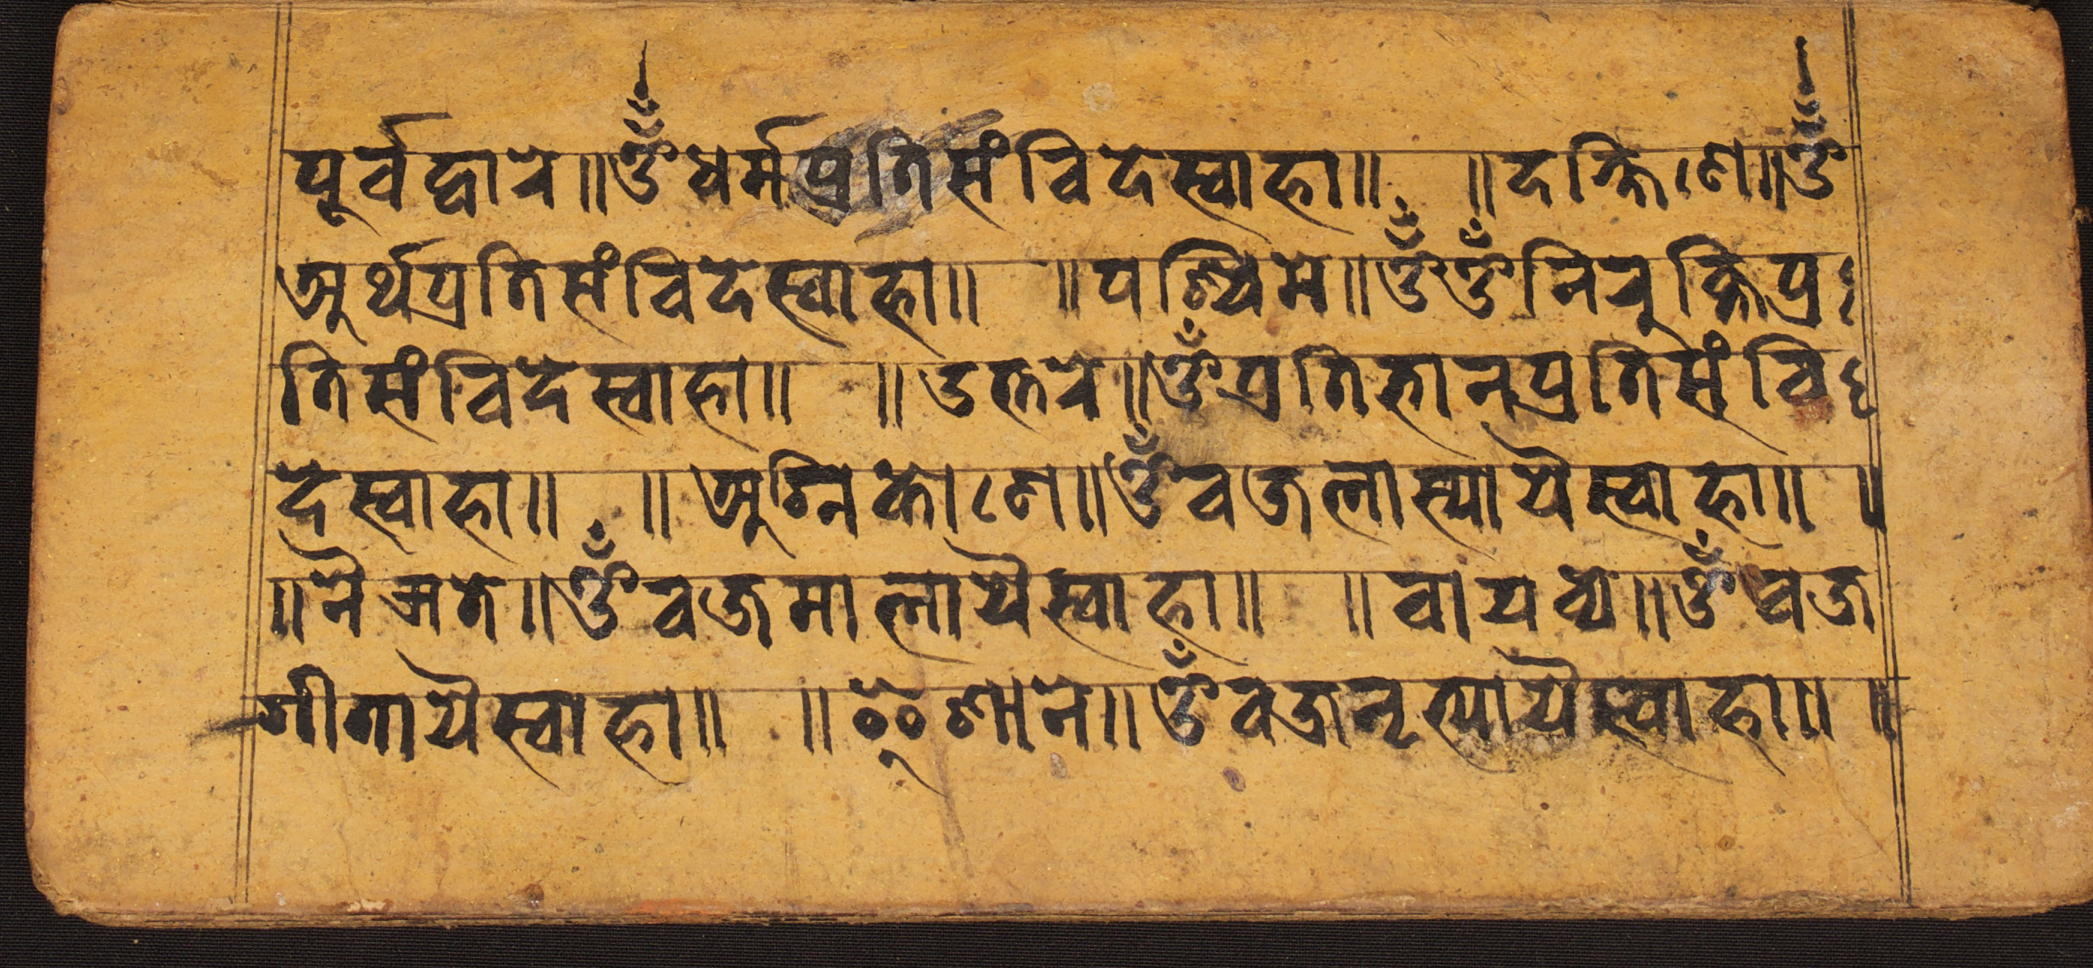 पूर्वद्वारे॥ॐधर्मप्रतिसंविदेस्वाहा॥ ॥दक्षिणे॥ॐ
अर्थप्रतिसंविदेस्वाहा॥ ॥पश्चिमे॥ॐॐनिरुक्तिप्र
तिसंविदेस्वाहा॥ ॥उत्तरे॥ॐप्रतिभानप्रतिसंवि
देस्वाहा॥ ॥अग्निकोणे॥ॐवज्रलास्यायैस्वाहा॥ ॥
॥नैऋते॥ॐवज्रमालायैस्वाहा॥ ॥वायव्ये॥ॐवज्र
गीतायैस्वाहा॥ ॥ईशाने॥ॐवज्रनृत्यायैस्वाहा॥ ॥